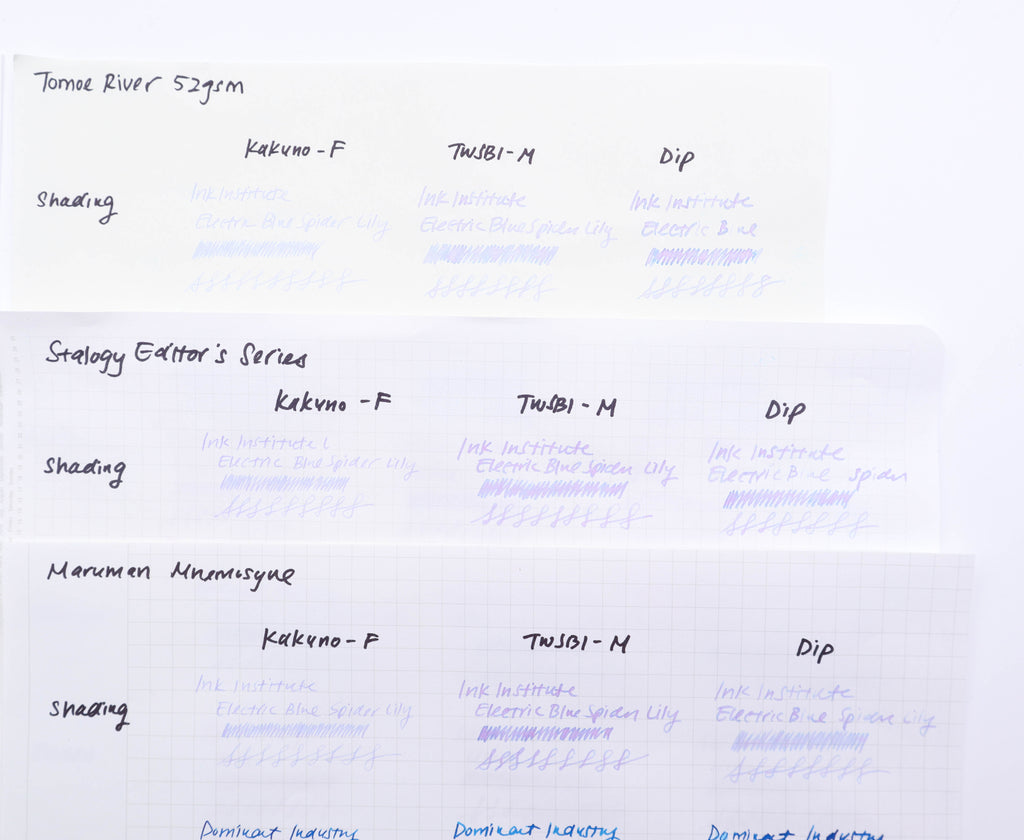 Tomoe River 52gsm
Kakuno - F TWSBI - M Dip
Shading
Ink Institute Ink Institute Ink Institute
Electric Blue Spider Lily Electric Blue Spider Lily Electric Blue
Stalogy Editor's Series
Kakuno - F TWSBI - M Dip
Shading
Ink Institute L Ink Institute Ink Institute
Electric Blue Spider Lily Electric Blue Spider Lily Electric Blue Spider
Maruman Mnemosyne
Kakuno - F TWSBI - M Dip
Shading
Ink Institute Ink Institute Ink Institute
Electric Blue Spider Lily Electric Blue Spider Lily Electric Blue Spider Lily
Dominant Industry Dominant Industry Dominant Industry